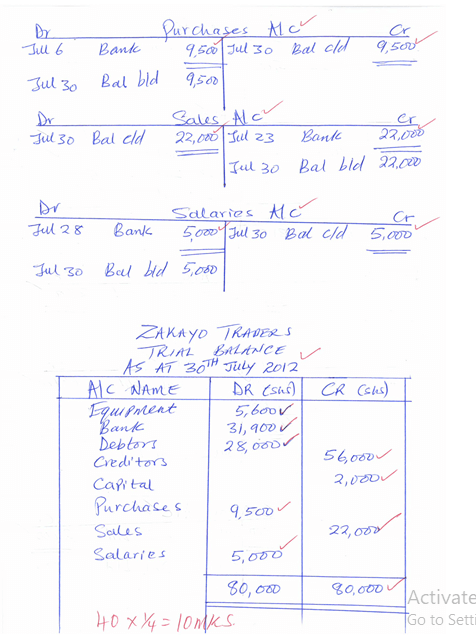 Dr Purchases A/c Cr
Jul 6 Bank 9,500 Jul 30 Bal c/d 9,500
Jul 30 Bal b/d 9,500
Dr Sales A/c Cr
Jul 30 Bal c/d 22,000 Jul 23 Bank 22,000
Jul 30 Bal b/d 22,000
Dr Salaries A/c Cr
Jul 28 Bank 5,000 Jul 30 Bal c/d 5,000
Jul 30 Bal b/d 5,000
ZAKAYO TRADERS
TRIAL BALANCE
AS AT 30TH JULY 2012
A/C NAME DR (SHS) CR (SHS)
Equipment 5,600
Bank 31,900
Debtors 28,000
Creditors 56,000
Capital 2,000
Purchases 9,500
Sales 22,000
Salaries 5,000
80,000 80,000
40 x 1/4 = 10mks
Activate
Go to Setti